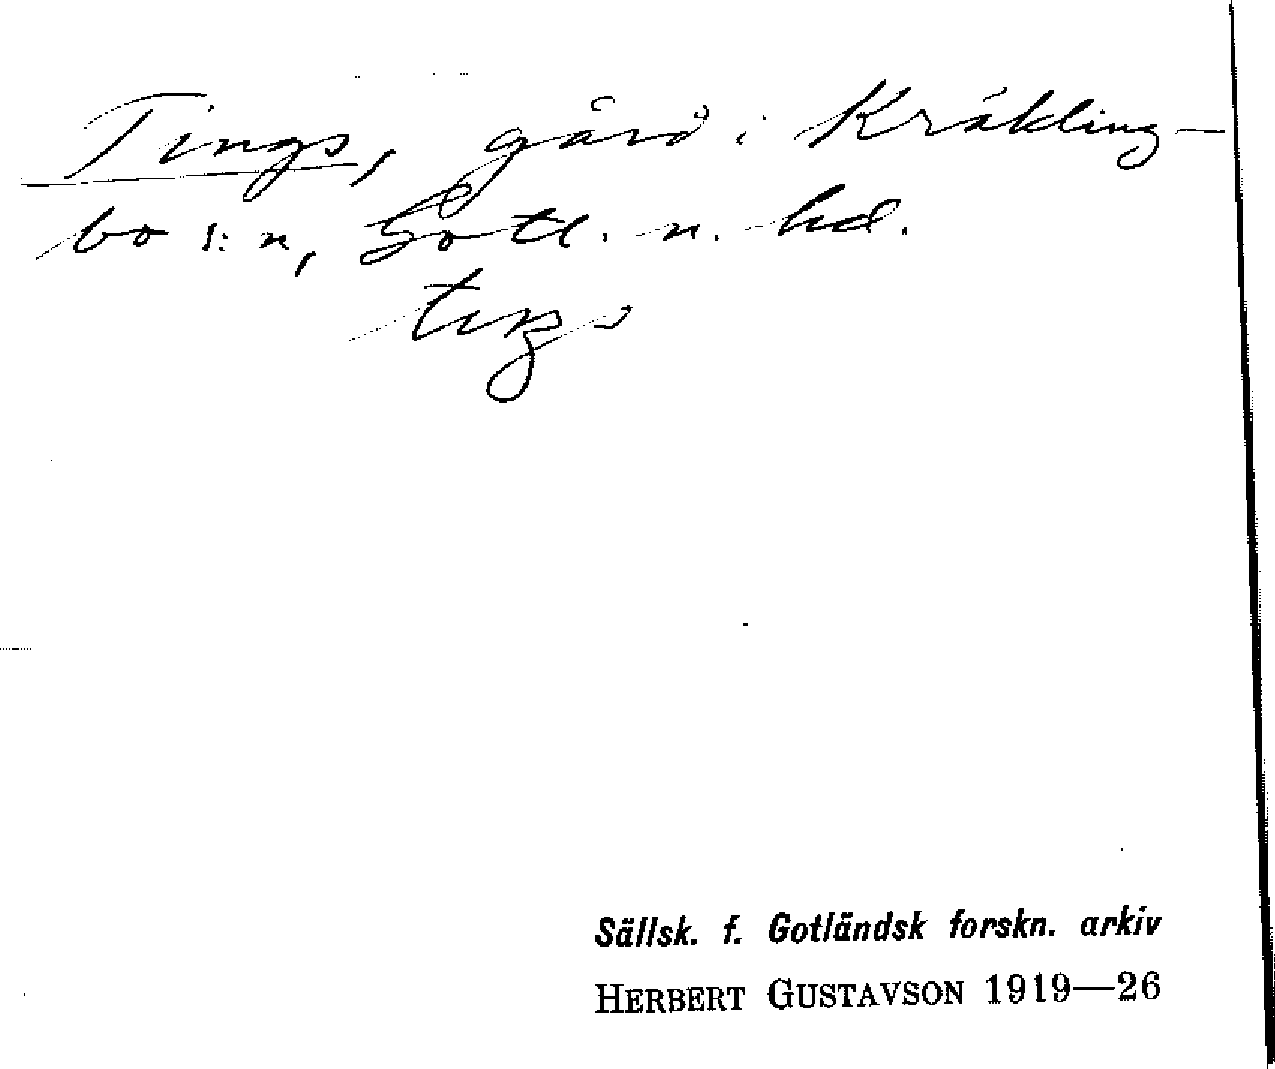 Tings, gård i Kräkling-
bo s:n, Gotl. n. hd.
Sällsk. f. Gotländsk forskn. arkiv
HERBERT GUSTAVSON 1919—26